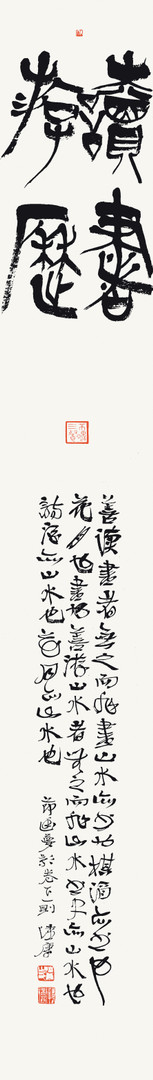 讀書
游歷
善讀書者無之而非書山水亦書也棋酒亦書也
花月亦書也善游山水者無之而非山水書史亦山水也
詩酒亦山水也花月亦山水也
幽夢影卷下一則